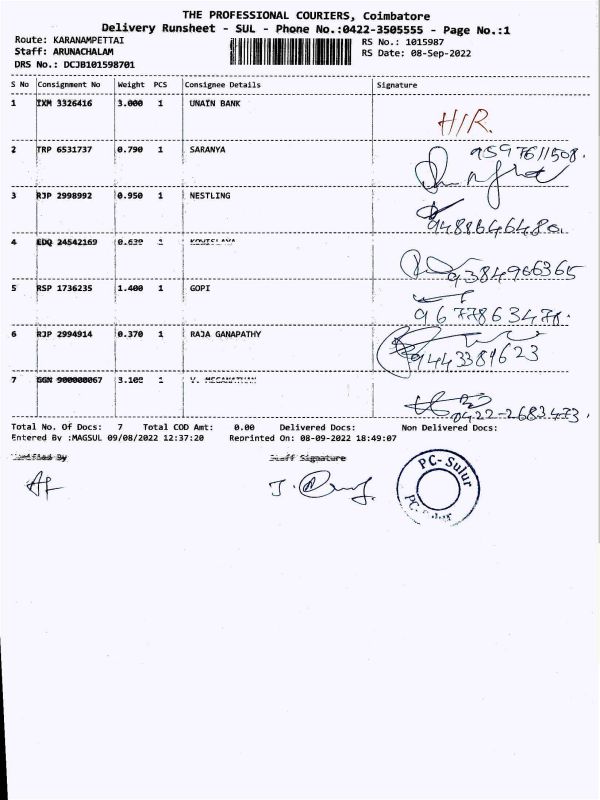 THE PROFESSIONAL COURIERS, Coimbatore
Delivery Runsheet - SUL - Phone No.:0422-3505555 - Page No.:1
Route: KARANAMPETTAI RS No.: 1015987
Staff: ARUNACHALAM RS Date: 08-Sep-2022
DRS No.: DCJB101598701
S No Consignment No Weight PCS Consignee Details Signature
1 IXM 3326416 3.000 1 UNAIN BANK
H/R.
2 TRP 6531737 0.790 1 SARANYA 9597611508.
3 RJP 2998992 0.950 1 NESTLING
9488646480.
4 EDQ 24542169 0.630 1
9384966365
5 RSP 1736235 1.400 1 GOPI
9677863478.
6 RJP 2994914 0.370 1 RAJA GANAPATHY
9443389623
7 GGN 900000067 3.100 1 V. MEGANATHAN
0422-2683473.
Total No. Of Docs: 7 Total COD Amt: 0.00 Delivered Docs: Non Delivered Docs:
Entered By :MAGSUL 09/08/2022 12:37:20 Reprinted On: 08-09-2022 18:49:07
Verified By Staff Signature
PC-Sulur
PC-Sulur